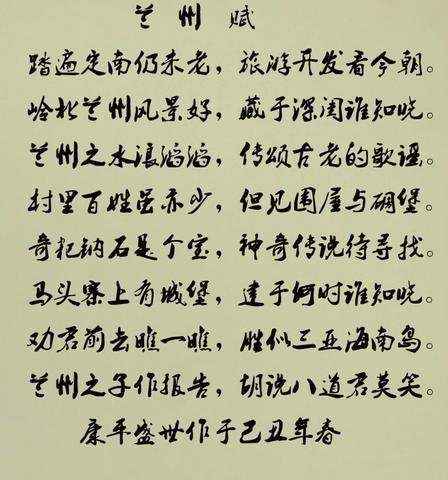 兰州赋
踏遍定南仍未老，旅游开发看今朝。
岭北兰州风景好，藏于深闺谁知晓。
兰州之水浪滔滔，传颂古老的歌谣。
村里百姓虽亦少，但见围屋与碉堡。
奇杞钠石是个宝，神奇传说待寻找。
马头寨上有城堡，建于何时谁知晓。
劝君前去瞧一瞧，胜似三亚海南岛。
兰州之子作报告，胡说八道君莫笑。
康平盛世作于己丑年春